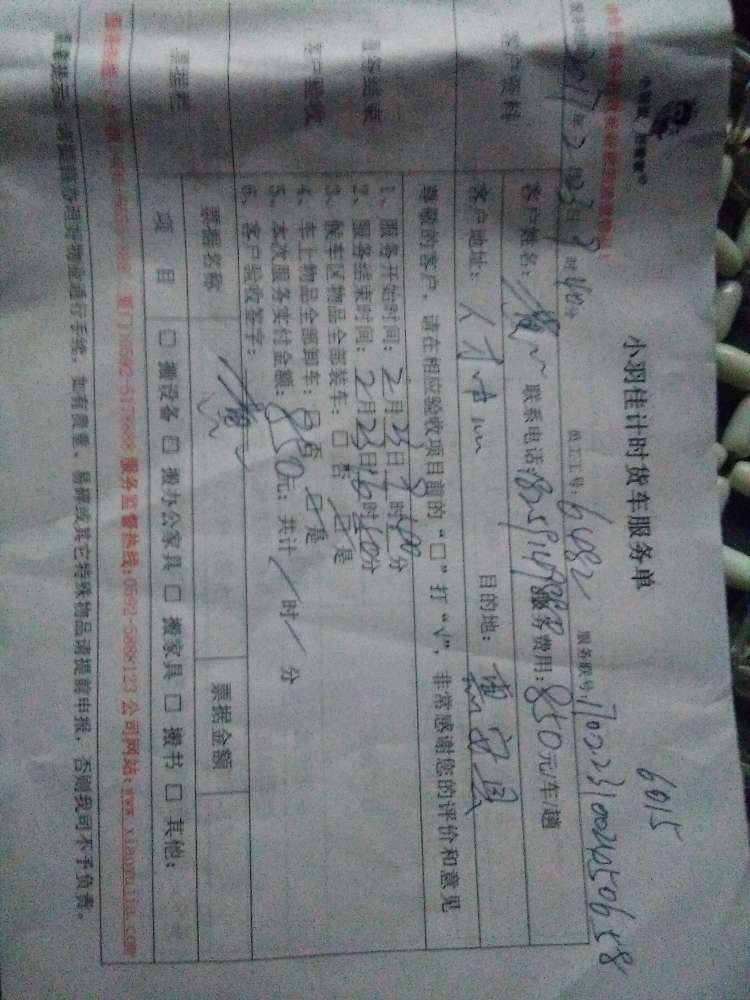 小羽佳计时货车服务单
6015
服务时间:2017年2月23日9时40分 员工工号:6482 服务联号:
客户资料
客户姓名: 联系电话: 服务费用:850元/车/趟
客户地址: 人才中心 目的地: 惠安县
尊敬的客户,请在相应验收项目前的“□”打“√”,非常感谢您的评价和意见
服务结束
客户验收
1、服务开始时间:2月23日9时00分
2、服务结束时间:2月23日16时10分
3、候车区物品全部装车:□否 □是
4、车上物品全部卸车:□否 □是
5、本次服务实付金额:850元;共计/时/分
6、客户验收签字:
票据栏
票据名称 票据金额
项 目 □ 搬设备 □ 搬办公家具 □ 搬家具 □ 搬书 □ 其他:
厦门)0592-5178888 服务监督热线:0592-5888123 公司网站:www.xiaoyujia.com
办理好物业通行手续,如有贵重、易碎或其它特殊物品请提前申报,否则我司不予负责。